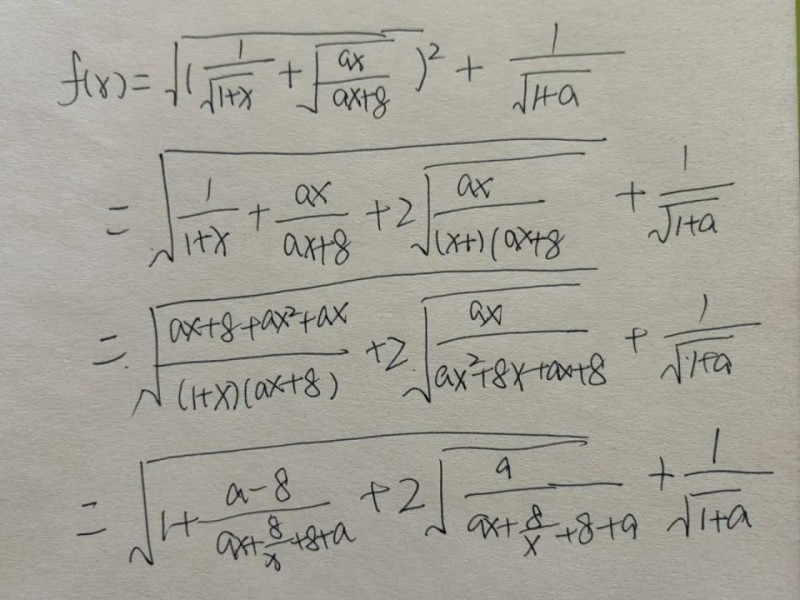 f(x) = √((1/√(1+x) + √(ax/(ax+8)))²) + 1/√(1+a)
= √(1/(1+x) + ax/(ax+8) + 2√(ax/((x+)(ax+8))) + 1/√(1+a)
= √((ax+8+ax²+ax)/((1+x)(ax+8)) + 2√(ax/(ax²+8x+ax+8))) + 1/√(1+a)
= √(1 + (a-8)/(ax+8/x+8+a) + 2√(a/(ax+8/x+8+a))) + 1/√(1+a)